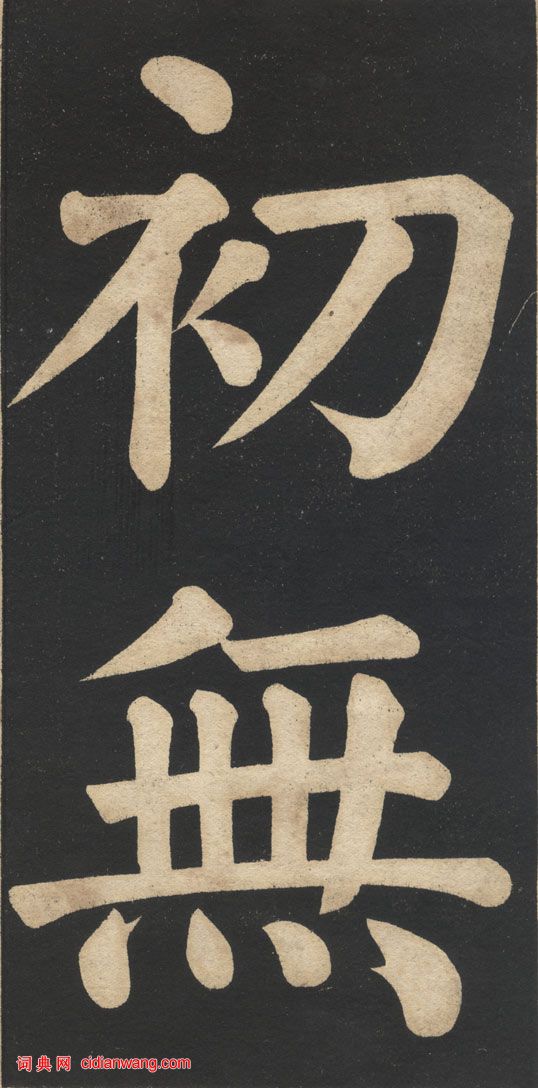 初無
词典网 cidianwang.com